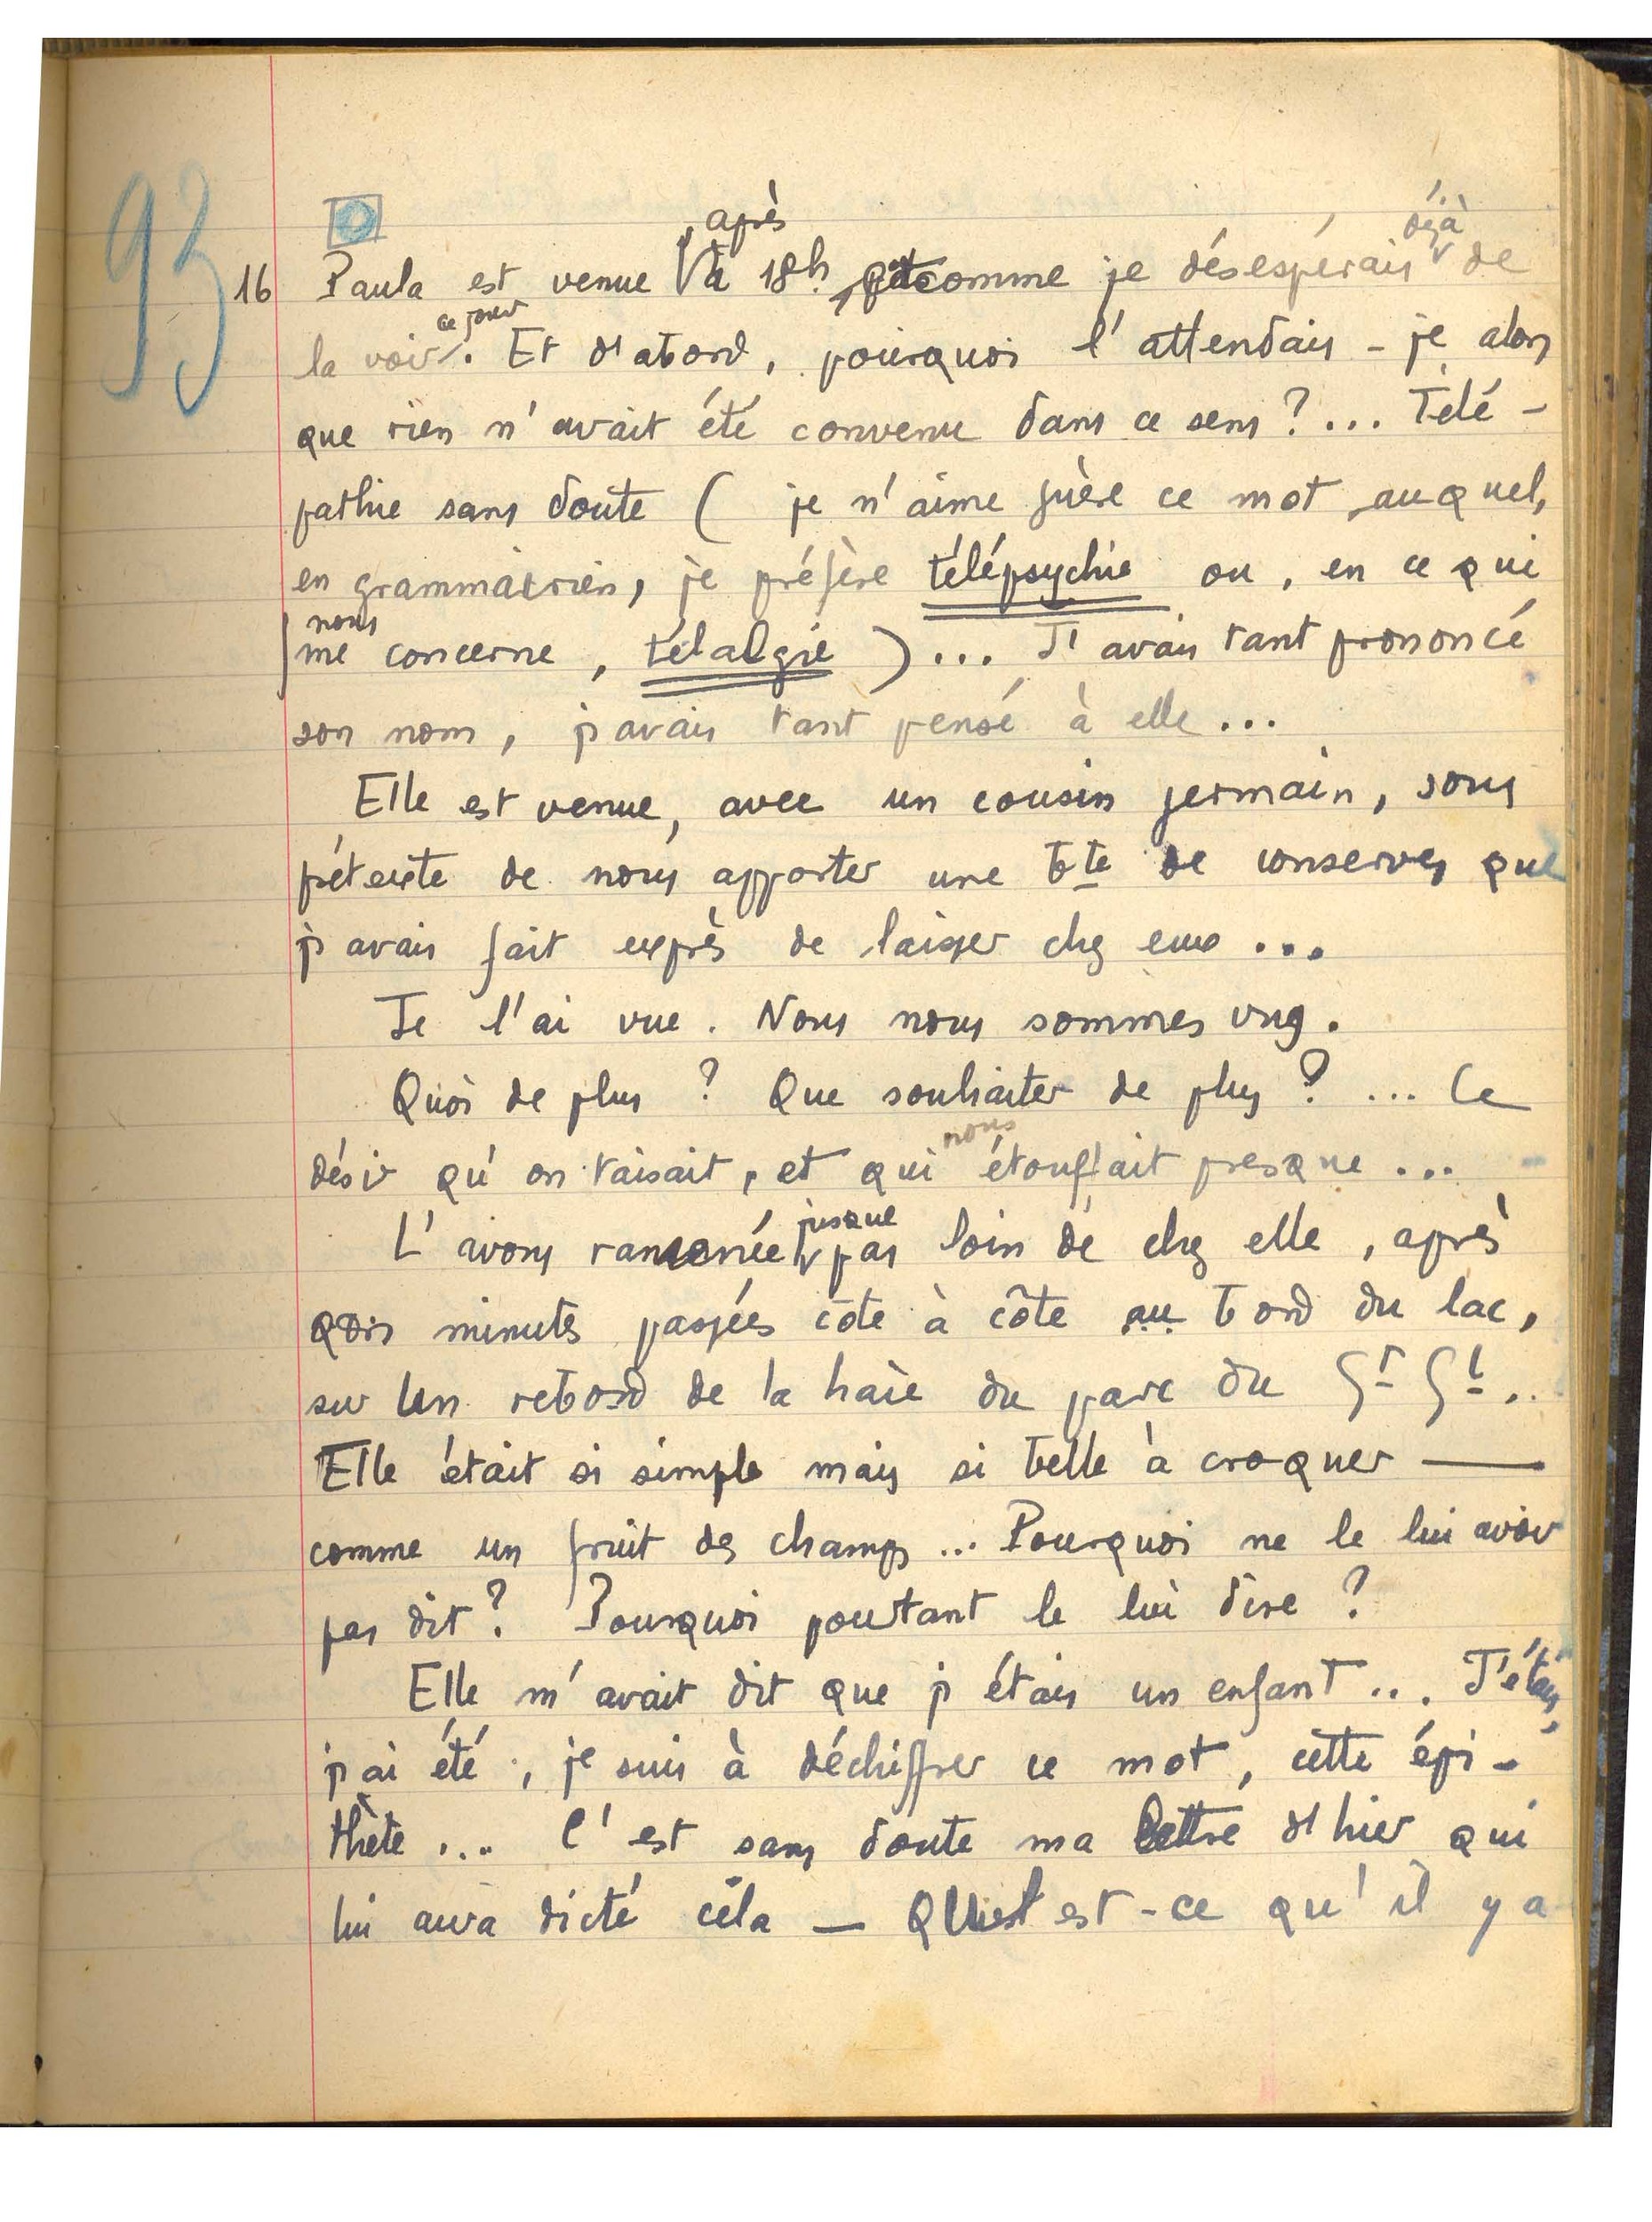 93
après
déjà
16 Paula est venue à 18h, comme je désespérais de
ce jour
la voir. Et d'abord, pourquoi l'attendais-je alors
que rien n'avait été convenu dans ce sens ?... Télé-
pathie sans doute ( je n'aime guère ce mot auquel,
en grammairien, je préfère télépsychie ou, en ce qui
nous
me concerne, télalgie )... J'avais tant prononcé
son nom, j'avais tant pensé à elle...
Elle est venue, avec un cousin germain, sous
prétexte de nous apporter une bte de conserves que
j'avais fait exprès de laisser chez eux...
Je l'ai vue. Nous nous sommes vus.
Quoi de plus ? Que souhaiter de plus ? ... Ce
nous
désir qu'on taisait, et qui étouffait presque...
jusque
L'avons ramenée pas loin de chez elle, après
qqs minutes passées côte à côte au bord du lac,
sur un rebord de la haie du parc du Gr Gl..
Elle était si simple mais si belle à croquer —
comme un fruit des champs... Pourquoi ne le lui avoir
pas dit ? Pourquoi pourtant le lui dire ?
Elle m'avait dit que j'étais un enfant... J'étais,
j'ai été, je suis à déchiffrer ce mot, cette épi-
thète... C'est sans doute ma lettre d'hier qui
lui aura dicté cela — Qu'est-ce qu'il y a